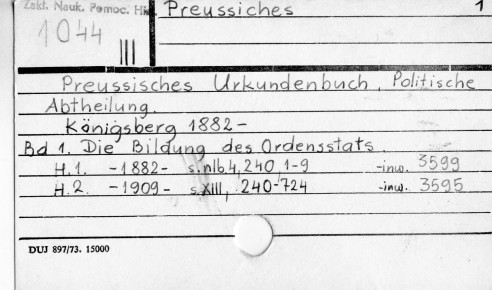 Zakt. Nauk. Pomoc. Hi
Preussiches 1
1044
III
Preussisches Urkundenbuch. Politische
Abtheilung.
Königsberg 1882-
Bd 1. Die Bildung des Ordensstats.
H.1. -1882- s.nlb.4, 240, 1-9 -inw. 3599
H.2. -1909- s.XIII, 240-724 -inw. 3595
DUJ 897/73. 15000